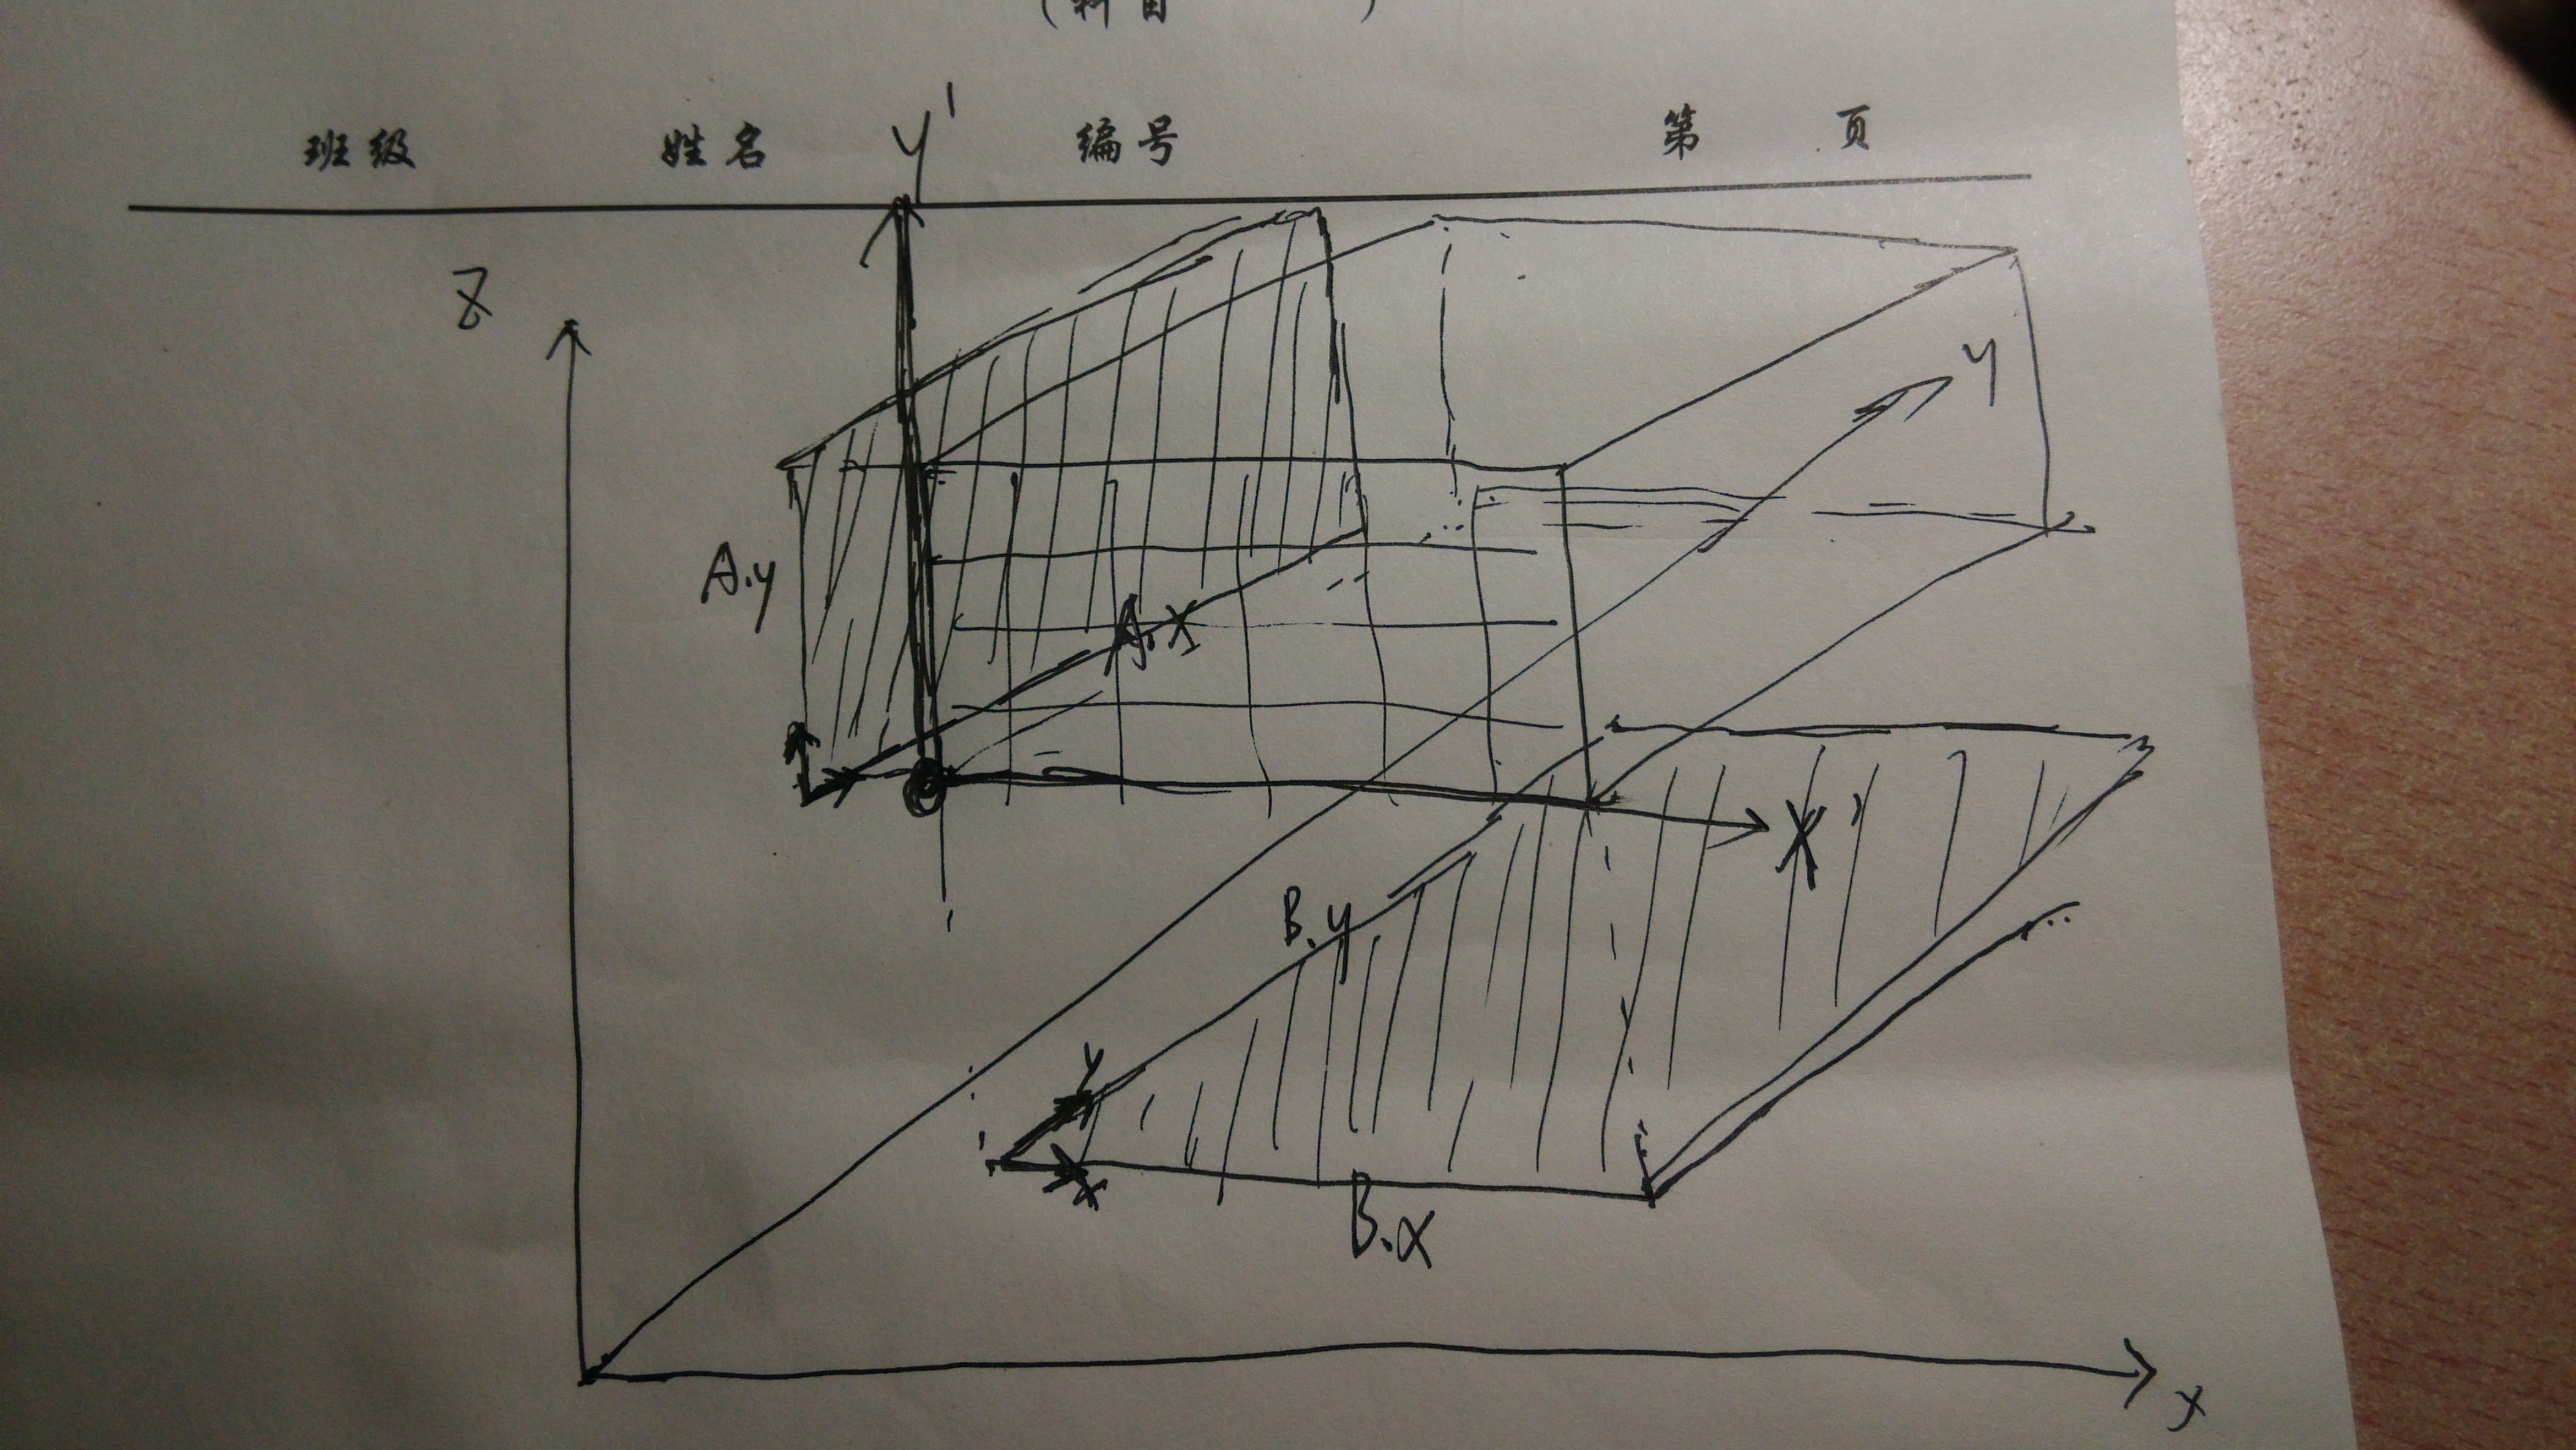 (科目 )
班级 姓名 编号 第 页
y'
Z
y
A.y
A.x
X'
B.y
y
x
B.x
x